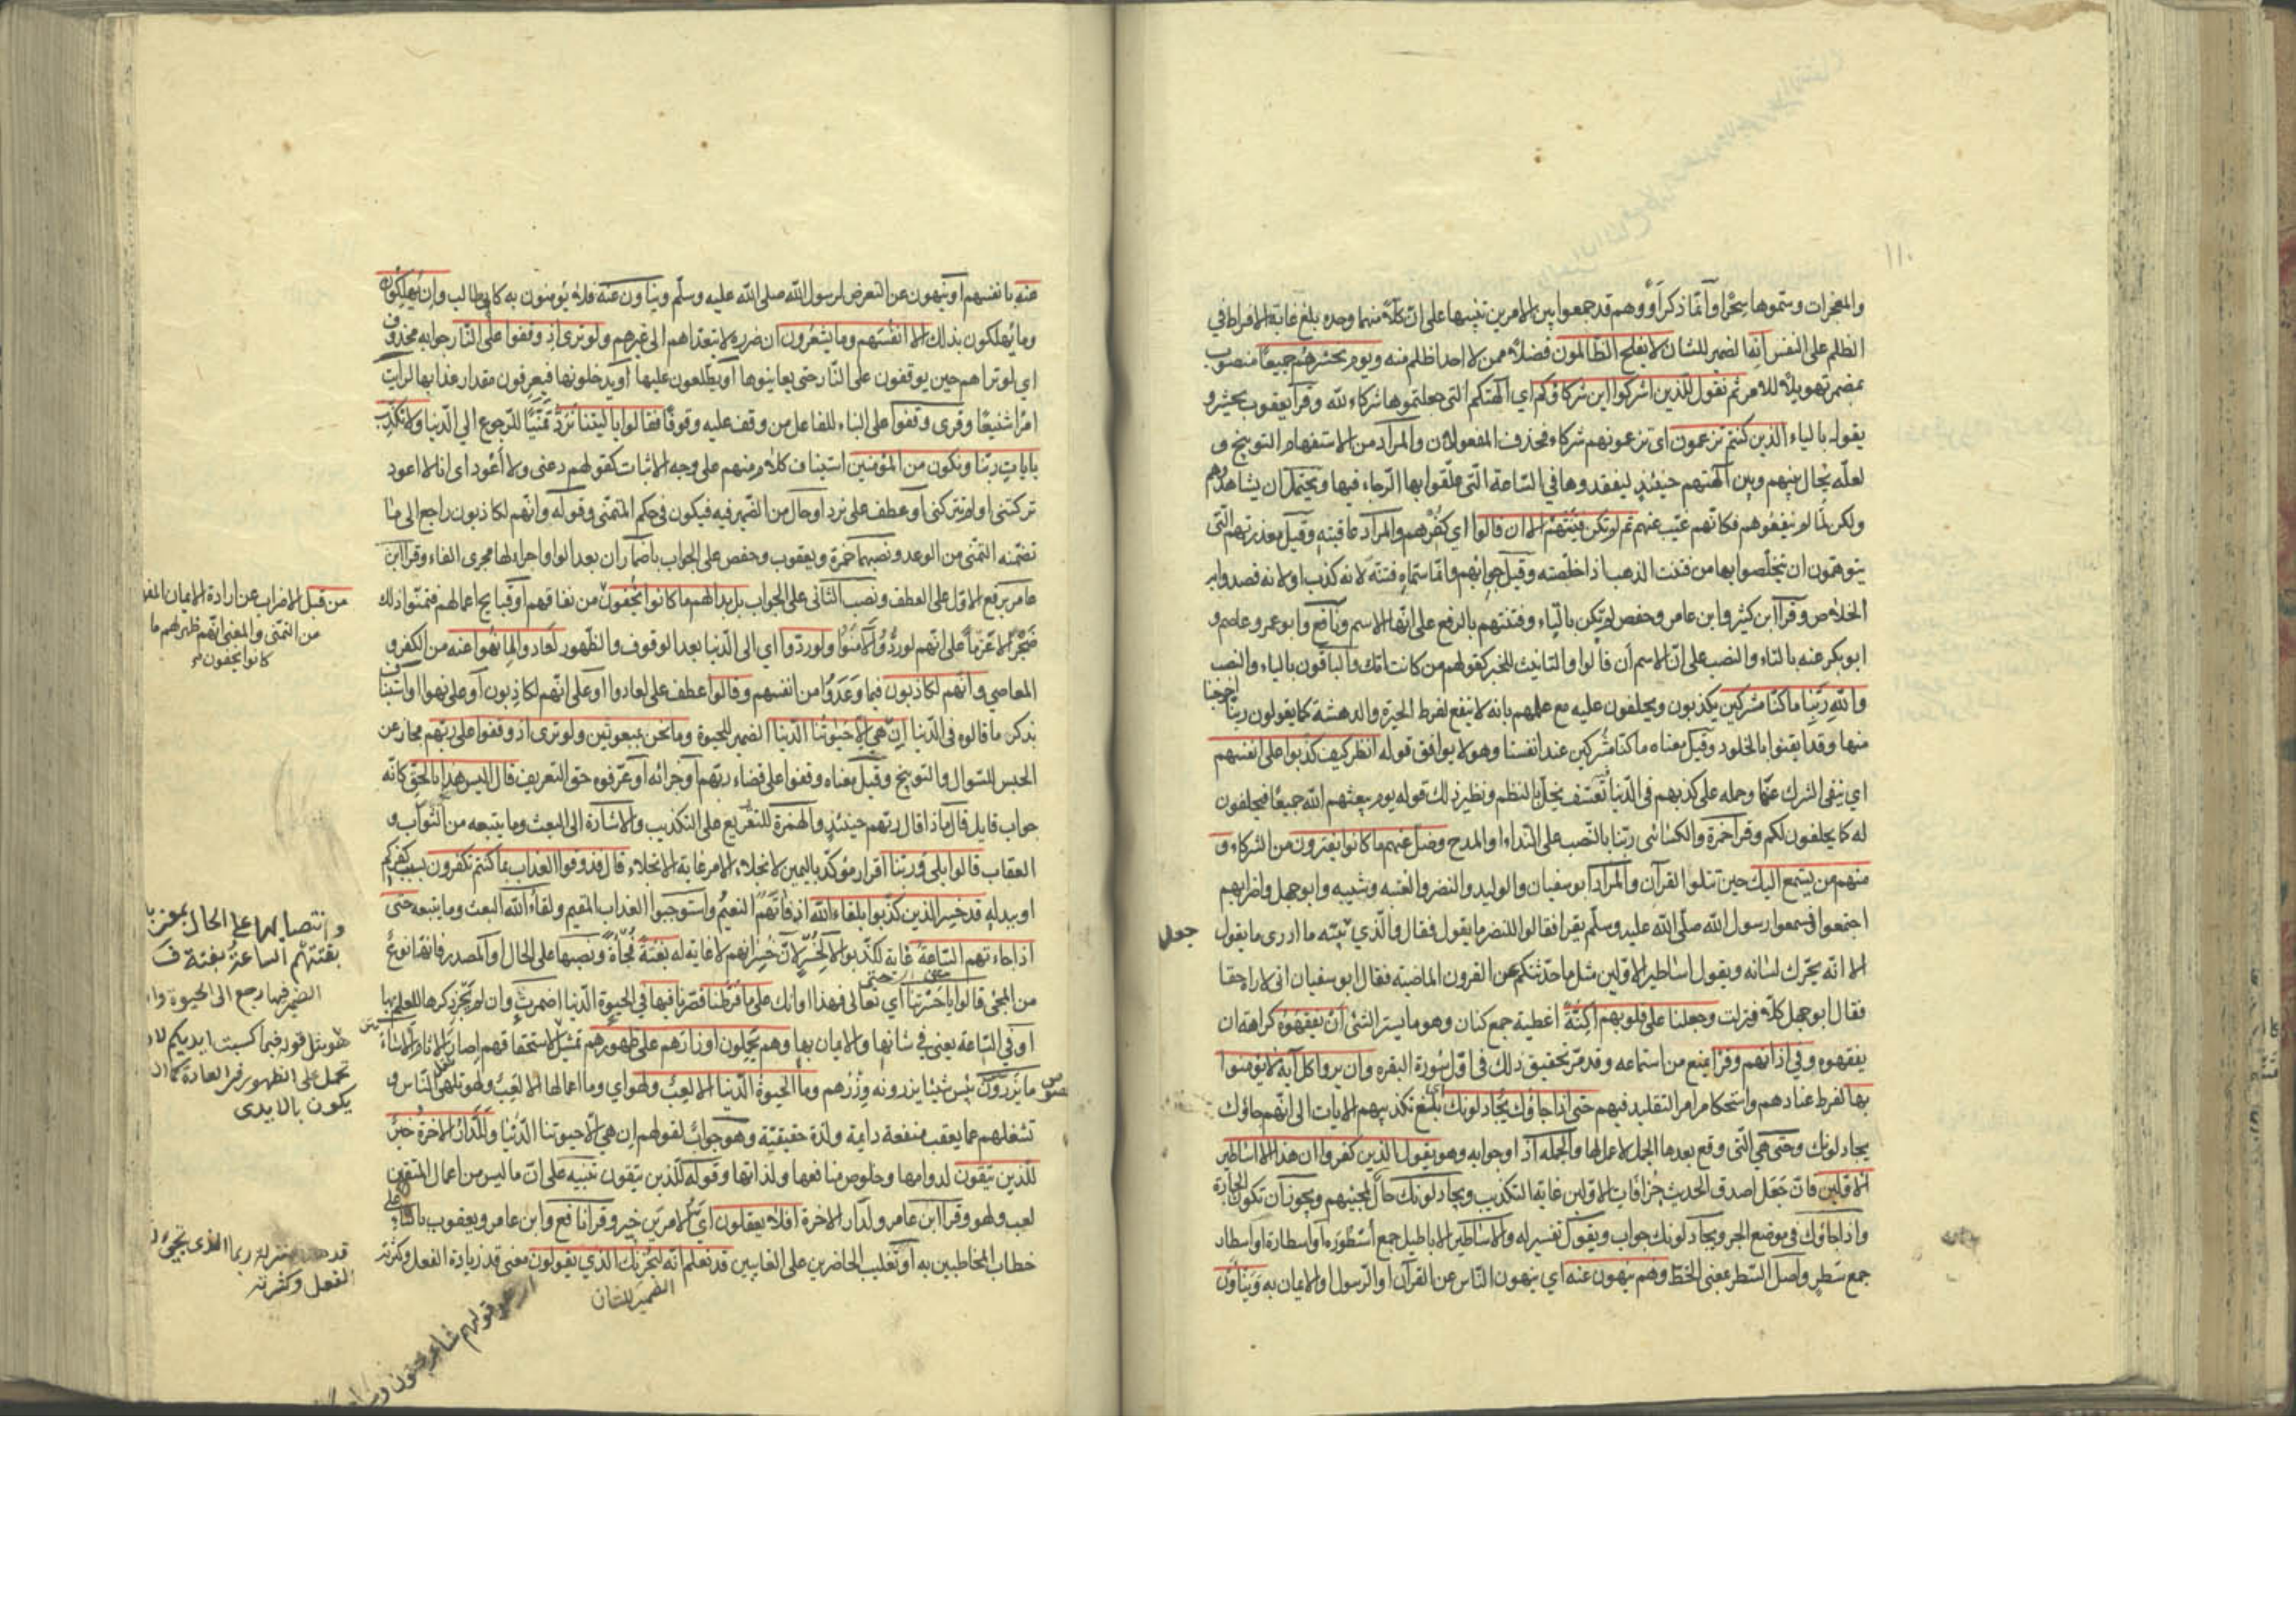 ١١٠
والمعجزات وسموها سحرا وانما ذكر أو وهم قد جمعوا بين الامرين تنبيها على ان كلا منهما وحده بلغ غاية الافراط في
الظلم على النفس انه الضمير للشان لا يفلح الظالمون فضلا عمن لا احد اظلم منه ويوم نحشرهم جميعا منصوب
بمضمر تهويلا للامر ثم نقول للذين اشركوا اين شركاؤكم اي آلهتكم التي جعلتموها شركاء لله وقرأ يعقوب يحشر و
يقول بالياء الذين كنتم تزعمون اى تزعمونهم شركاء فحذف المفعولان والمراد من الاستفهام التوبيخ و
لعله يحال بينهم وبين آلهتهم حينئذ ليفقدوها في الساعة التي علقوا بها الرجاء فيها ويحتمل ان يشاهدوهم
ولكن لما لم ينفعوهم فكانهم غيب عنهم ثم لم تكن فتنتهم الا ان قالوا اي كفرهم والمراد عاقبته وقيل معذرتهم التي
يتوهمون ان يتخلصوا بها من فتنت الذهب اذا خلصته وقيل جوابهم وانما سماه فتنة لانه كذب او لانه قصدوا به
الخلاص وقرأ ابن كثير وابن عامر وحفص لم تكن بالتاء وفتنتهم بالرفع على انها الاسم ونافع وابو عمرو وعاصم و
ابو بكر عنه بالتاء والنصب على ان الاسم أن قالوا والتانيث للخبر كقولهم من كانت امك والباقون بالياء والنصب
والله ربنا ما كنا مشركين يكذبون ويحلفون عليه مع علمهم بانه لا ينفع لفرط الحيرة والدهشة كما يقولون ربنا اخرجنا
منها وقد ايقنوا بالخلود وقيل معناه ما كنا مشركين عند انفسنا وهو لا يوافق قوله انظر كيف كذبوا على انفسهم
اي بنفى الشرك عنها وحمله على كذبهم في الدنيا تعسف يخل بالنظم ونظير ذلك قوله يوم يبعثهم الله جميعا فيحلفون
له كما يحلفون لكم وقرأ حمزة والكسائى ربنا بالنصب على النداء او المدح وضل عنهم ما كانوا يفترون من الشركاء و
منهم من يستمع اليك حين تتلوا القرآن والمراد ابو سفيان والوليد والنضر والعتبه وشيبه وابو جهل واضرابهم
اجتمعوا فسمعوا رسول الله صلى الله عليه وسلم يقرأ فقالوا للنضر ما يقول فقال والذي بيته ما ادرى ما يقول
جعل
الا انه يحرك لسانه ويقول اساطير الاولين مثل ما حدثتكم عن القرون الماضية فقال ابو سفيان انى لاراه حقا
فقال ابو جهل كلا فنزلت وجعلنا على قلوبهم اكنة اغطية جمع كنان وهو ما يستر الشئ ان يفقهوه كراهة ان
يفقهوه وفي اذانهم وقرا يمنع من استماعه وقد مر تحقيق ذلك فى اول سورة البقره وان يروا كل آية لا يؤمنوا
بها لفرط عنادهم واستحكام امر التقليد فيهم حتى اذا جاؤك يجادلونك اي بلغ تكذيبهم الايات الى انهم جاؤك
يجادلونك وحتى هي التي وقع بعدها الجمل لا عمل لها والجمله اذا وجوابه وهو يقول الذين كفروا ان هذا الا اساطير
الاولين فان جعل اصدق الحديث خرافات الاولين غاية التكذيب ويجادلونك حال لمجيئهم ويجوز أن تكون الجارة
واذا جاؤك في موضع الجر ويجادلونك جواب ويقول تفسير له والاساطير الاباطيل جمع أسطورة او اسطارة او اسطار
جمع سطر واصل السطر بمعنى الخط وهم ينهون عنه اي ينهون الناس عن القرآن او الرسول او الايمان به وينأون
عنه بانفسهم او ينهون عن التعرض لرسول الله صلى الله عليه وسلم وينأون عنه فلا يؤمنون به كابي طالب وان يهلكون
وما يهلكون بذلك الا انفسهم وما يشعرون ان ضرره لا يتعداهم الى غيرهم ولو ترى اذ وقفوا على النار جوابه محذوف
اي لو تراهم حين يوقفون على النار حتى يعاينوها أو يطلعون عليها أو يدخلونها فيعرفون مقدار عذابها لرايت
امرا شنيعا وقرى وقفوا على البناء للفاعل من وقف عليه وقوفا فقالوا يا ليتنا نرد تمنيا للرجوع الى الدنيا ولا نكذب
بايات ربنا ونكون من المؤمنين استيناف كلام منهم على وجه الاثبات كقولهم دعنى ولا أعود اى انا لا اعود
تركتنى او لم تتركنى او عطف على نرد او حال من الضمير فيه فيكون في حكم المتمنى وقوله وانهم لكاذبون راجع الى ما
تضمنه التمنى من الوعد ونصبهما حمزة ويعقوب وحفص على الجواب باضمار ان بعد الواو اجراء لها مجرى الفاء وقرأ ابن
عامر برفع الاول على العطف ونصب الثانى على الجواب بل بدا لهم ما كانوا يخفون من نفاقهم او قبايح اعمالهم فتمنوا ذلك
ضجرا لا عزما على انهم لو ردوا لامنوا ولو ردوا اي الى الدنيا بعد الوقوف والظهور لعادوا لما نهوا عنه من الكفر و
المعاصي وانهم لكاذبون فيما وعدوا من انفسهم وقالوا عطف على لعادوا او على انهم لكاذبون أو على نهوا او استيناف
بذكر ما قالوه في الدنيا ان هي الا حيوتنا الدنيا الضمير للحيوة وما نحن بمبعوثين ولو ترى اذ وقفوا على ربهم مجاز عن
الحبس للسوال والتوبيخ وقيل معناه وقفوا على قضاء ربهم أو جزائه أو عرفوه حق التعريف قال اليس هذا بالحق كانه
جواب قايل قال ماذا قال ربهم حينئذ والهمزة للتقريع على التكذيب والاشارة الى البعث وما يتبعه من الثواب و
العقاب قالوا بلى وربنا اقرار مؤكد باليمين لانجلاء الامر غاية الانجلاء قال فذوقوا العذاب بما كنتم تكفرون بسبب كفركم
او ببدله قد خسر الذين كذبوا بلقاء الله اذ فاتهم النعيم واستوجبوا العذاب المقيم ولقاء الله البعث وما يتبعه حتى
اذا جاءتهم الساعة غاية لكذبوا لا لخسر لان خسرانهم لا غاية له بغتة فجأة ونصبها على الحال او المصدر فانها نوع
من المجئ قالوا يا حسرتنا اي تعالى فهذا اوانك على ما فرطنا قصرنا فيها في الحيوة الدنيا اضمرت وان لم يجر ذكرها للعلم بها
او في الساعة يعنى في شانها والايمان بها وهم يحملون اوزارهم على ظهورهم تمثيل لاستحقاقهم اصار الاثام الا ساء
ما يزرون بئس شيئا يزرونه وزرهم وما الحيوة الدنيا الا لعب ولهو اي وما اعمالها الا لعب ولهو تلهى الناس و
تشغلهم عما يعقب منفعة دايمة ولذة حقيقية وهو جواب لقولهم ان هي الا حيوتنا الدنيا وللدار الاخرة خير
للذين يتقون لدوامها وخلوص منافعها ولذاتها وقوله للذين يتقون تنبيه على ان ما ليس من اعمال المتقين
لعب ولهو وقرأ ابن عامر ولدار الاخرة افلا يعقلون اي الامرين خير وقرأ نافع وابن عامر ويعقوب بالتاء على
خطاب المخاطبين به أو تغليب الحاضرين على الغايبين قد نعلم انه ليحزنك الذي يقولون معنى قد زيادة الفعل وكثرته
الضمير للشان
من قبل الاضراب عن ارادة الايمان
من التمنى والمعنى انهم ظهر لهم ما
كانوا يخفون
وانتصابها على الحال بمعنى
بغتتهم الساعة بغتة
الضمير فيها رجع الى الحيوة
هو مثل قوله فبما كسبت ايديكم
تحمل على الظهور في العادة كما ان
يكون بالايدى
قد بمنزلة ربما الذى تجئ
الفعل وكثرته
هو قولهم شاعر مجنون